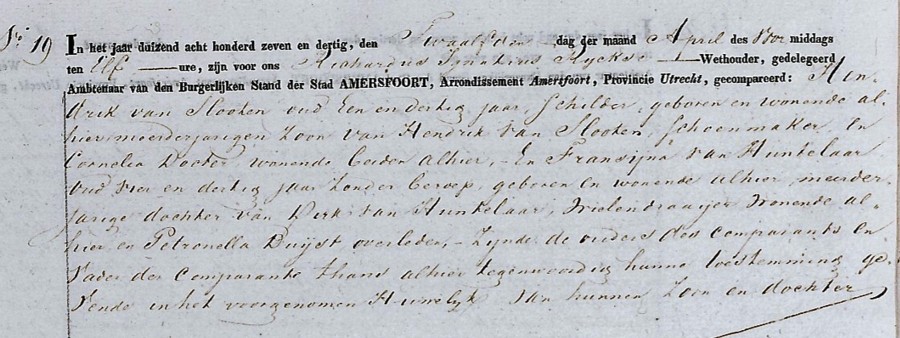 No 19
In het jaar duizend acht honderd zeven en dertig, den Twaalfden dag der maand April des Voor middags
ten Elf ure, zijn voor ons Richardus Ignatius Ryckx Wethouder, gedelegeerd
Ambtenaar van den Burgerlijken Stand der Stad AMERSFOORT, Arrondissement Amerfoort, Provincie Utrecht, gecompareerd: Hen
drik van Slooten oud Een en dertig jaar, Schilder, geboren en wonende al=
hier, meerderjarigen Zoon van Hendrik van Slooten, Schoenmaker en
Cornelia Docter wonende beiden alhier, – En Fransijna van Hunkelaar
oud vier en dertig jaar zonder beroep, geboren en wonende alhier, meerder
jarige dochter van Dirk van Hunkelaar, Wielendraayer Wonende al=
hier en Petronella Duijst overleden, – Zijnde de ouders des Comparants en
Vader der Comparante thans alhier tegenwoordig hunne toestemming ge
vende in het voorgenomen Huwelyk van hunnen Zoon en dochter